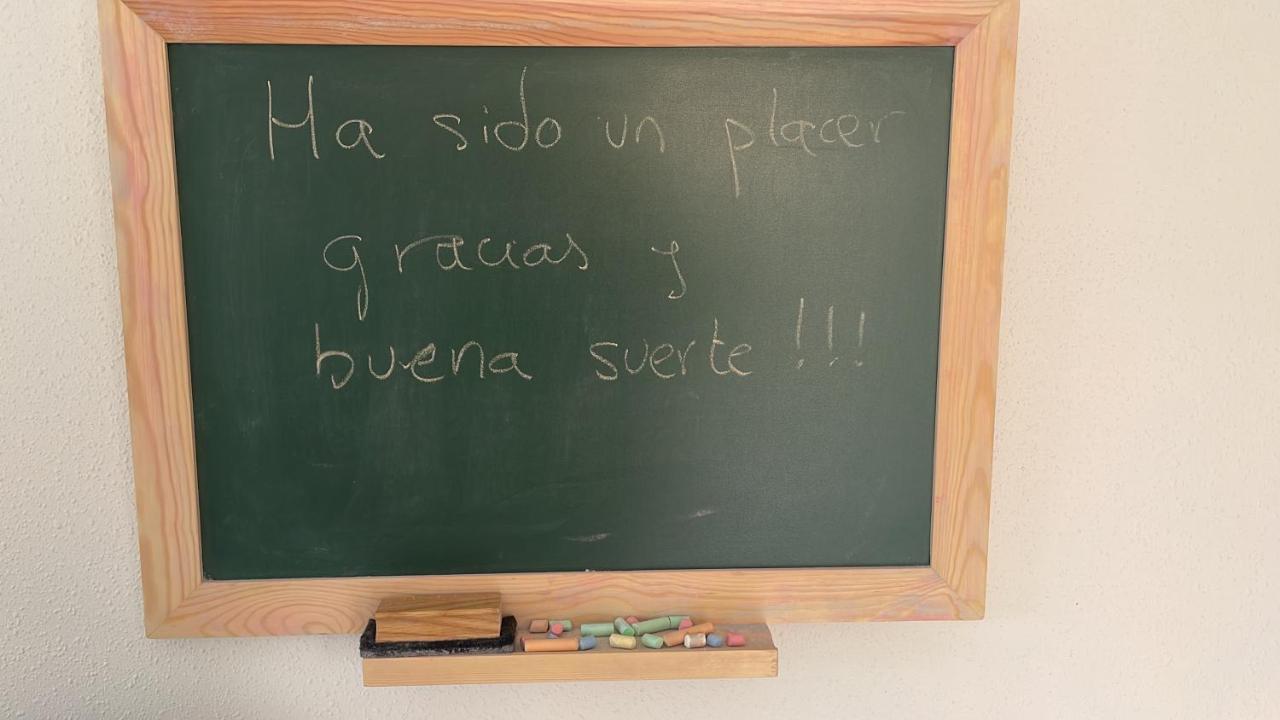 Ha sido un placer
gracias y
buena suerte !!!